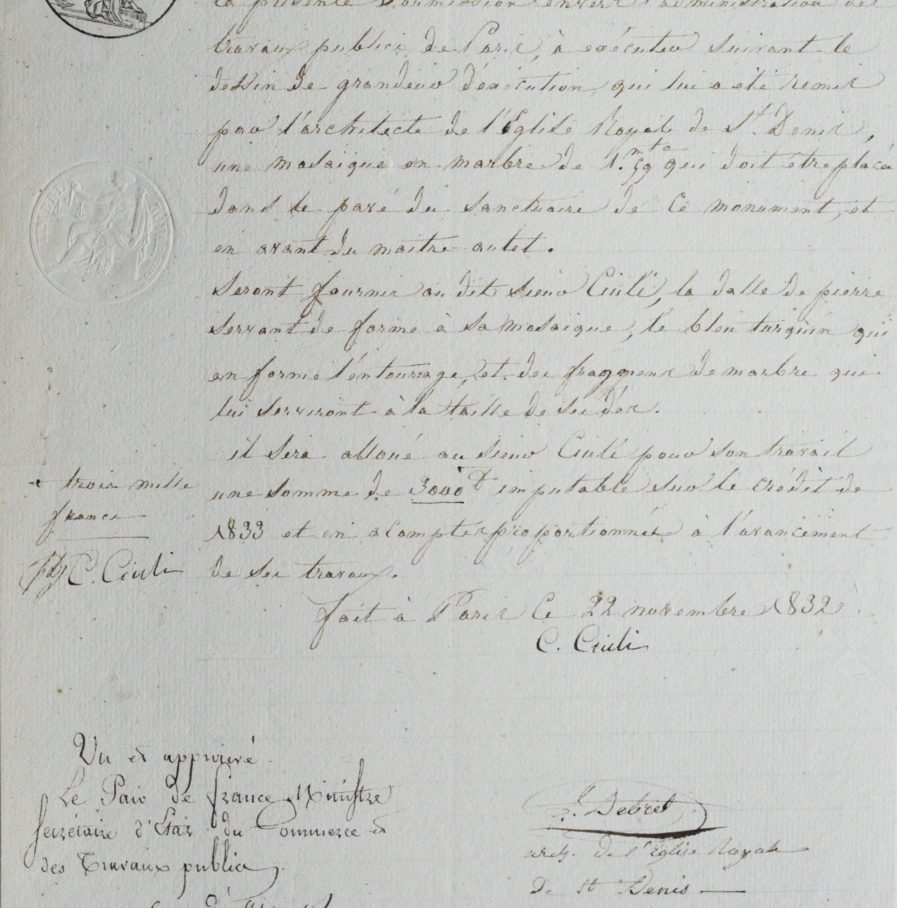 la présente soumission envers l'administration des
travaux publics de Paris, à exécuter suivant le
dessin de grandeur d'exécution, qui lui a été remis
par l'architecte de l'Eglise Royale de St Denis,
une mosaique en marbre de 1.mto 59 qui doit etre placée
dans le pavé du sanctuaire de ce monument, et
en avant du maitre-autel.
Seront fournis au dit sieur Ciuli, la dalle de pierre
servant de forme à sa mosaique, le bleu turquin qui
en forme l'entourage, et des fragmens de marbre qui
lui serviront à la taille de ses dés.
il sera alloué au sieur Ciuli pour son travail
une somme de 3000 f imputable sur le crédit de
1833 et en acomptes proportionnés à l'avancement
de ses travaux.
trois mille
francs
C. Ciuli
fait à Paris ce 22 novembre 1832
C. Ciuli
Vu et approuvé
Le Pair de france Ministre
Secrétaire d'Etat du Commerce et
des Travaux publics
Debret
arch. de l'Eglise Royale
De St Denis